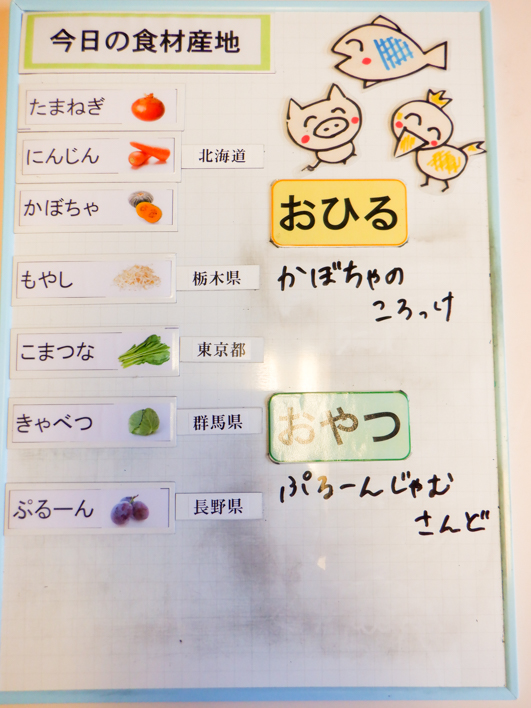 今日の食材産地
たまねぎ
にんじん 北海道
かぼちゃ
もやし 栃木県
こまつな 東京都
きゃべつ 群馬県
ぷるーん 長野県
おひる
かぼちゃの
ころっけ
おやつ
ぷるーんじゃむ
さんど